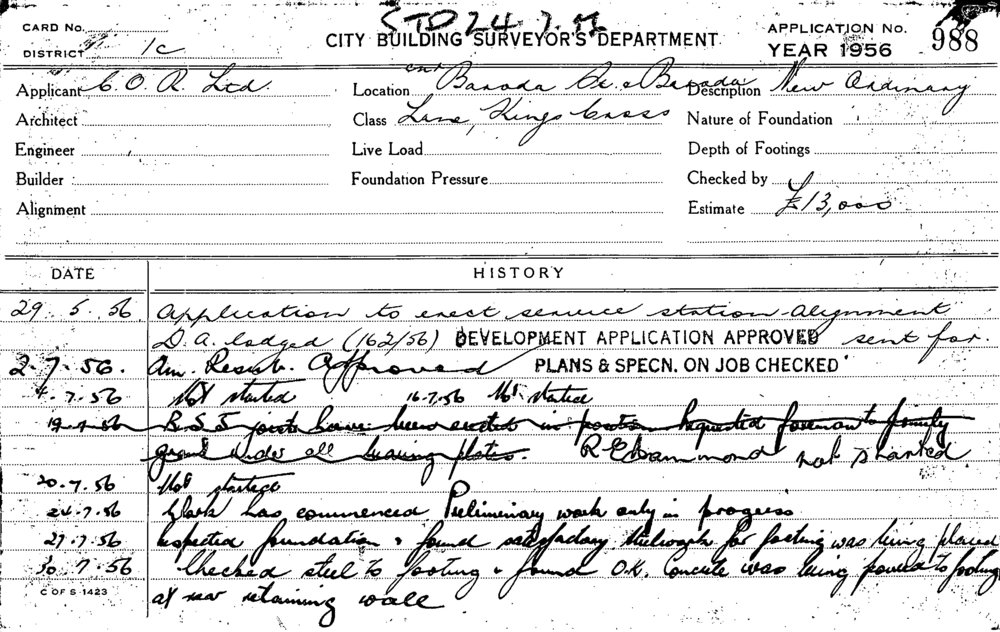 STD 24.7.56
CARD No.
CITY BUILDING SURVEYOR'S DEPARTMENT
APPLICATION No. 988
DISTRICT 1c
YEAR 1956
Applicant C.O.R. Ltd.
Location cnr Baroda St. & Baroda
Description New Ordinary
Architect
Class Lane, Kings Cross
Nature of Foundation
Engineer
Live Load
Depth of Footings
Builder
Foundation Pressure
Checked by
Alignment
Estimate £13,000
DATE HISTORY
29.5.56 Application to erect service station. Alignment
D.A. lodged (162/56) DEVELOPMENT APPLICATION APPROVED sent for.
2.7.56. Am. Resub. Approved PLANS & SPECN. ON JOB CHECKED
4.7.56 Not started 16.7.56 Not started
19.7.56 R.S.J joists have been erected in position Requested foreman to firmly
grout under all bearing plates. R E Hammond not started
20.7.56 Not started
24.7.56 Work has commenced Preliminary work only in progress
27.7.56 Inspected foundation & found satisfactory Steelwork for footing was being placed
30.7.56 Checked steel to footing & found O.K. Concrete was being poured to footing
C OF S 1423
at rear retaining wall